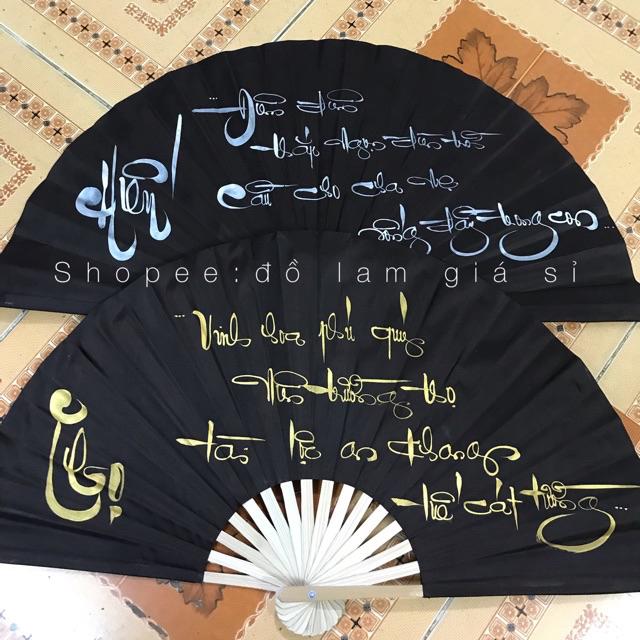 Hiếu
... Đêm đêm
thắp ngọn đèn trời
Cầu cho cha mẹ
sống con ...
Shopee:đồ lam giá sỉ
... Vinh hoa phú quý
trường thọ
Thọ
tài lộc an khang
cát tường ...